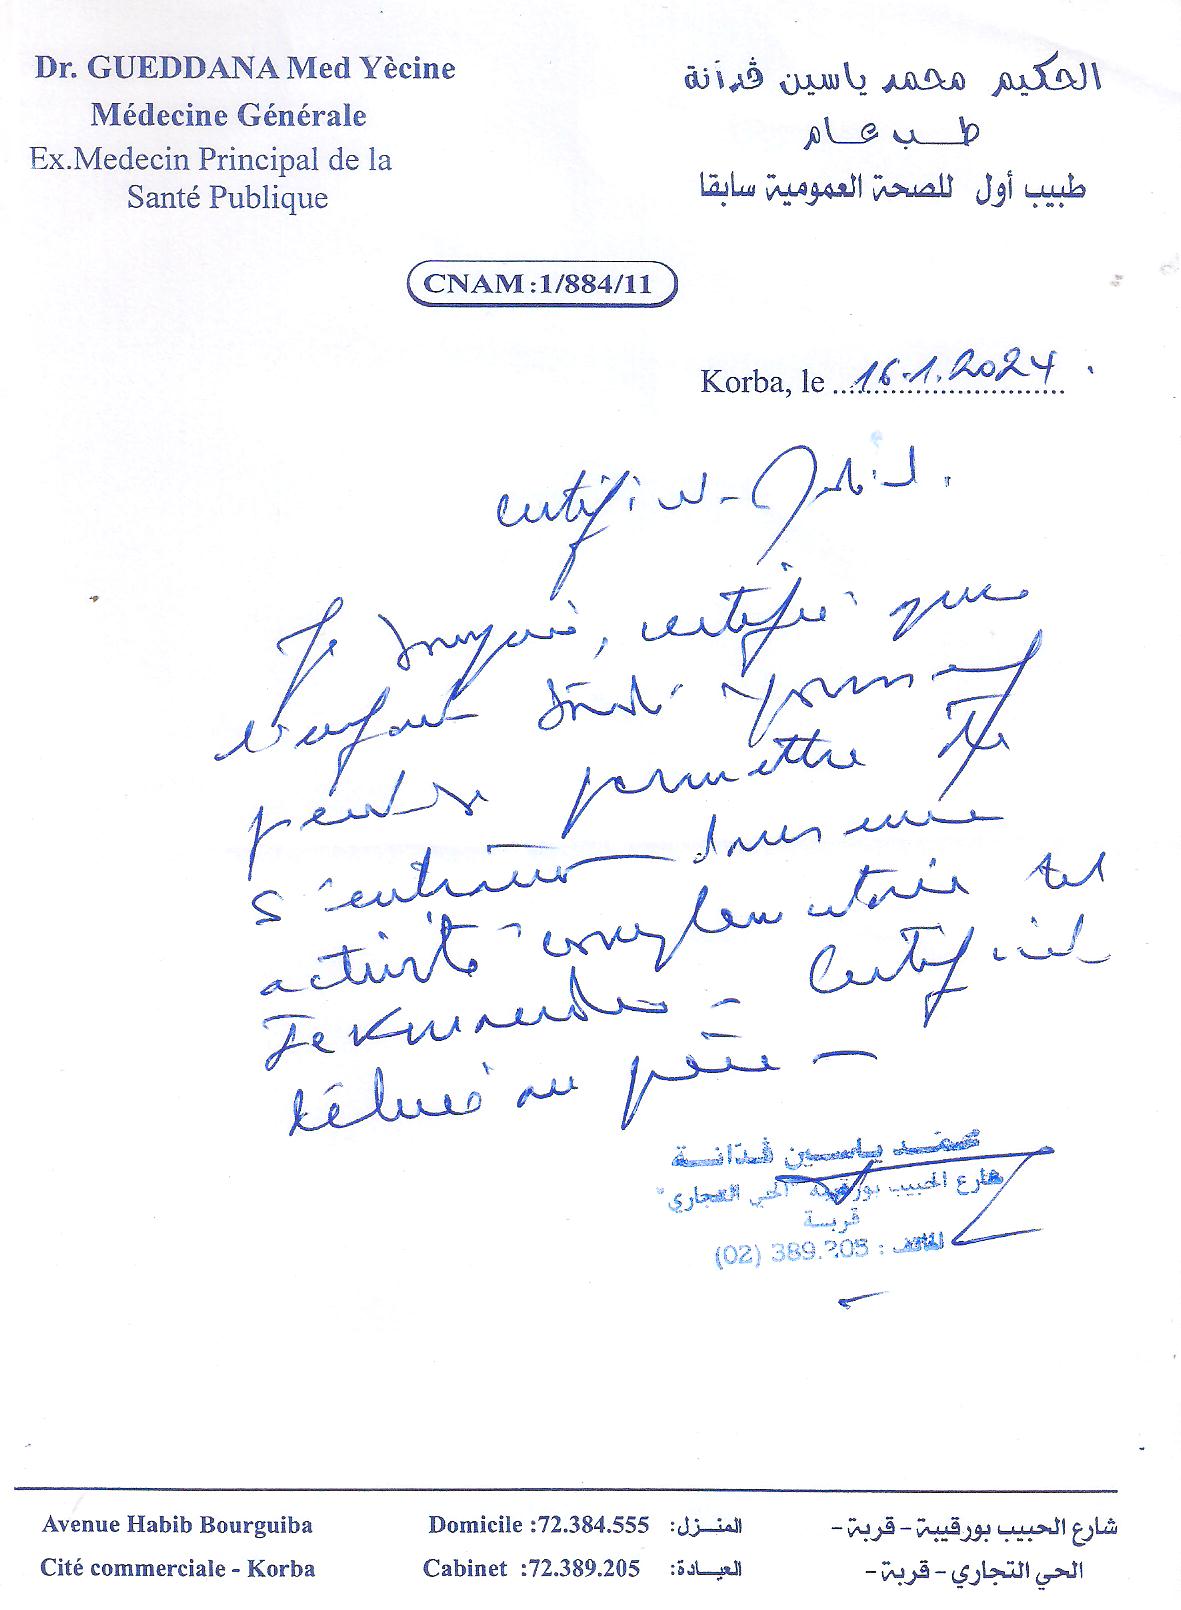 Dr. GUEDDANA Med Yècine
Médecine Générale
Ex.Medecin Principal de la
Santé Publique
الحكيم محمد ياسين ڤدانة
طب عام
طبيب أول للصحة العمومية سابقا
CNAM :1/884/11
Korba, le 16.1.2024
certificat médical.
Je soussigné, certifie que
l'enfant Youssef
peut se permettre de
s'entraîner dans une
activité complémentaire tel
Certificat
délivré au père
محمد ياسين ڤدانة
شارع الحبيب بورقيبة "الحي التجاري"
قربة
الهاتف : 389.205 (02)
Avenue Habib Bourguiba
Domicile :72.384.555 المنزل:
شارع الحبيب بورقيبة - قربة -
Cité commerciale - Korba
Cabinet :72.389.205 العيادة:
الحي التجاري - قربة -